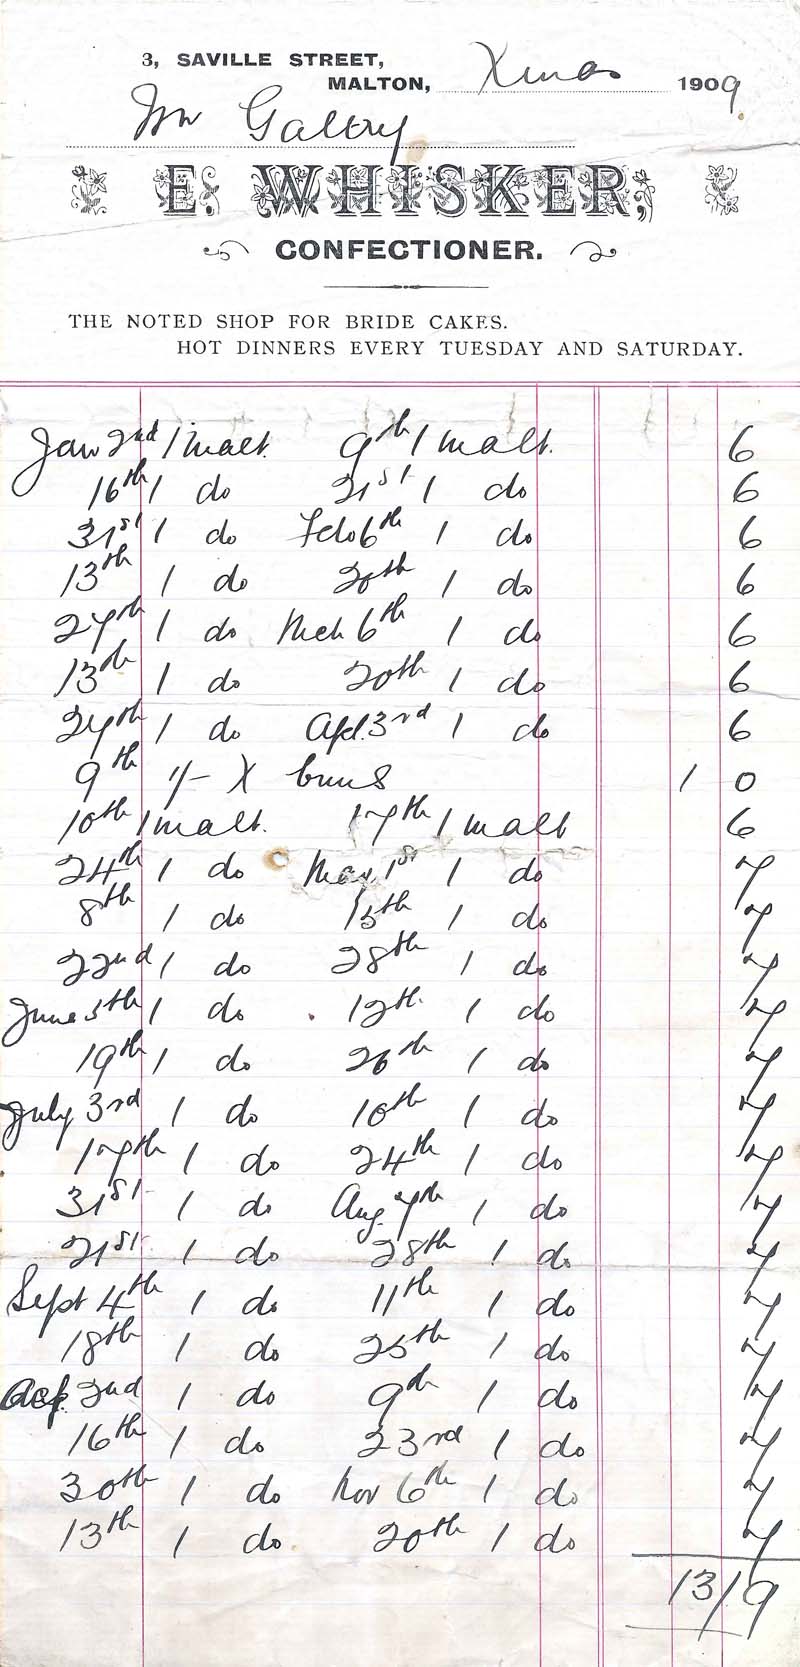 3, SAVILLE STREET,
MALTON, Xmas 1909
Mr Galtry
E. WHISKER,
CONFECTIONER.
THE NOTED SHOP FOR BRIDE CAKES.
HOT DINNERS EVERY TUESDAY AND SATURDAY.
Jan 2nd 1 malt. 9th 1 malt. 6
16th 1 do 21st 1 do 6
31st 1 do Feb 6th 1 do 6
13th 1 do 20th 1 do 6
27th 1 do Mch 6th 1 do 6
13th 1 do 20th 1 do 6
27th 1 do Apl. 3rd 1 do 6
9th 1/- X buns 1 0
10th 1 malt. 17th 1 malt 6
24th 1 do May 1st 1 do 7
8th 1 do 15th 1 do 7
22nd 1 do 28th 1 do 7
June 5th 1 do 12th 1 do 7
19th 1 do 26th 1 do 7
July 3rd 1 do 10th 1 do 7
17th 1 do 24th 1 do 7
31st 1 do Aug 7th 1 do 7
21st 1 do 28th 1 do 7
Sept 4th 1 do 11th 1 do 7
18th 1 do 25th 1 do 7
Oct. 2nd 1 do 9th 1 do 7
16th 1 do 23rd 1 do 7
30th 1 do Nov 6th 1 do 7
13th 1 do 20th 1 do 7
13/9